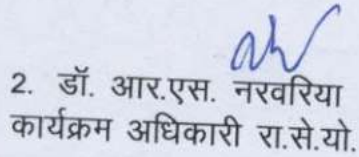 2. डॉ. आर.एस. नरवरिया
कार्यक्रम अधिकारी रा.से.यो.